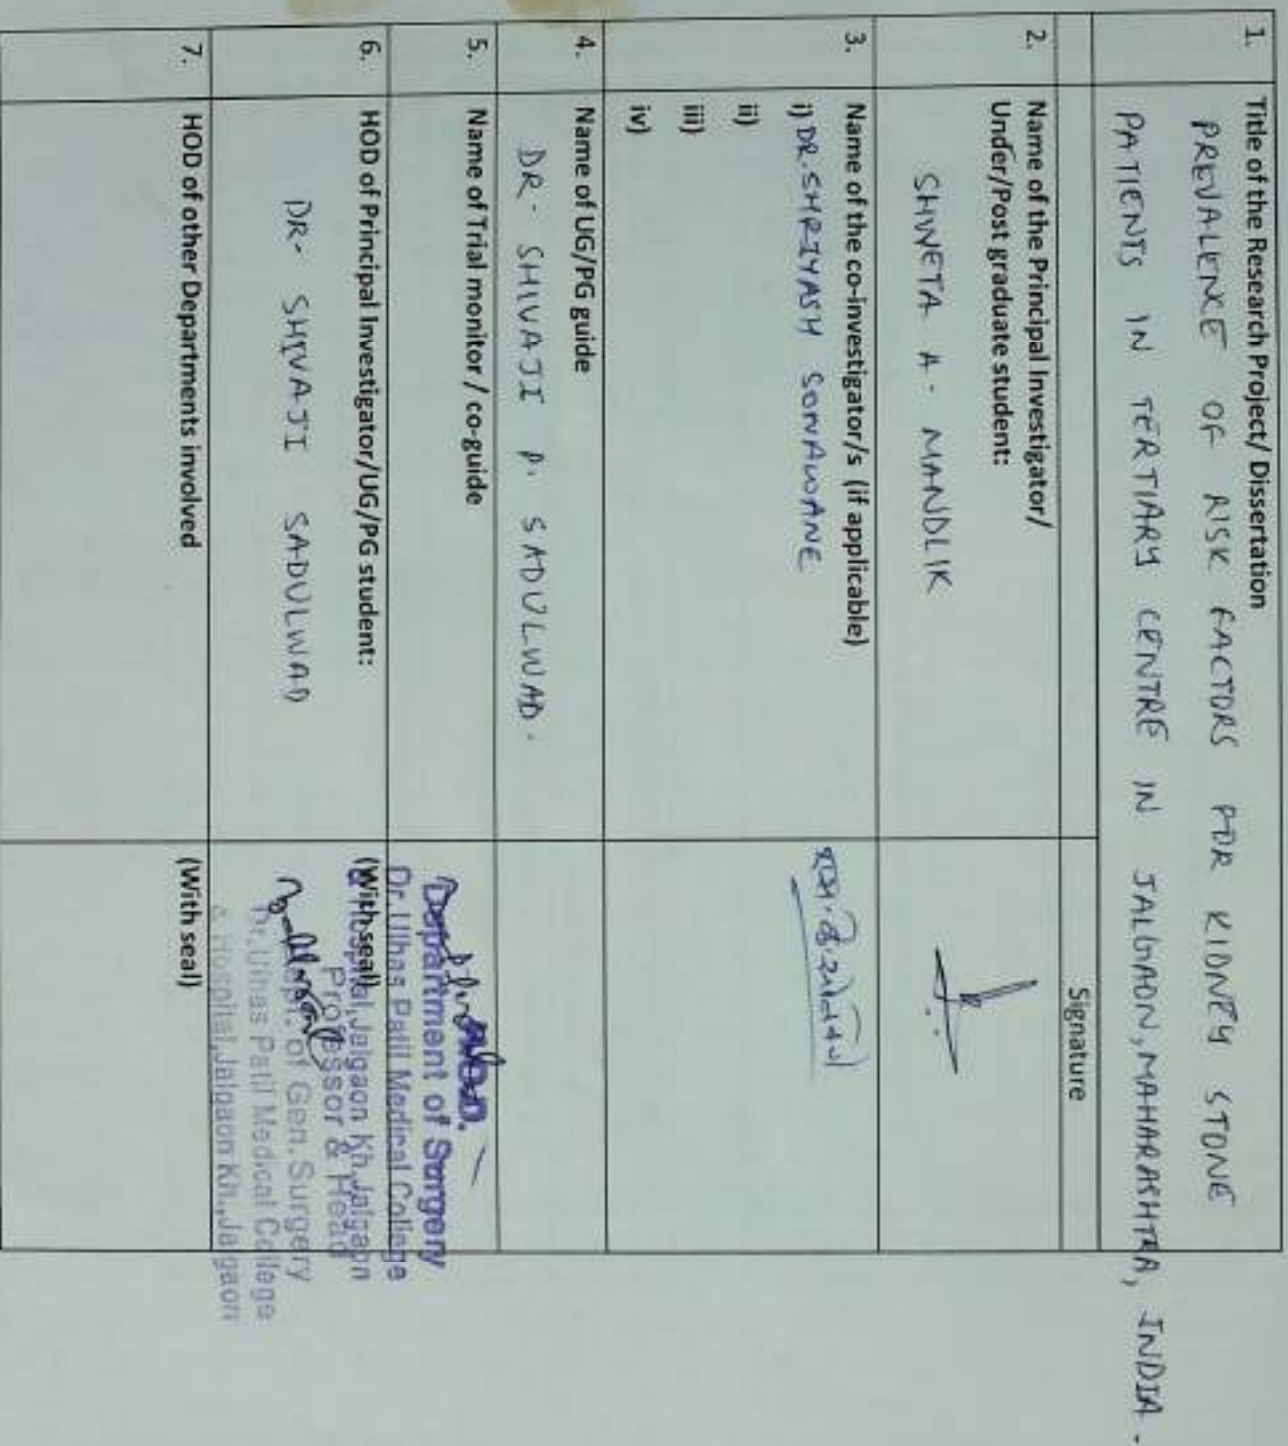 1. Title of the Research Project/ Dissertation
PREVALENCE OF RISK FACTORS FOR KIDNEY STONE
PATIENTS IN TERTIARY CENTRE IN JALGAON, MAHARASHTRA, INDIA -
Signature
2. Name of the Principal Investigator/
Under/Post graduate student:
SHWETA A. MANDLIK
3. Name of the co-investigator/s (if applicable)
i) DR. SHRIYASH SONAWANE
ii)
iii)
iv)
4. Name of UG/PG guide
DR. SHIVAJI P. SADULWAD.
5. Name of Trial monitor / co-guide
Department of Surgery
Dr. Ulhas Patil Medical College
& Hospital, Jalgaon Kh. Jalgaon
6. HOD of Principal Investigator/UG/PG student:
(With seal)
DR. SHIVAJI SADULWAD
Professor & Head
Dept. of Gen. Surgery
Dr. Ulhas Patil Medical College
& Hospital, Jalgaon Kh., Jalgaon
7. HOD of other Departments involved
(With seal)